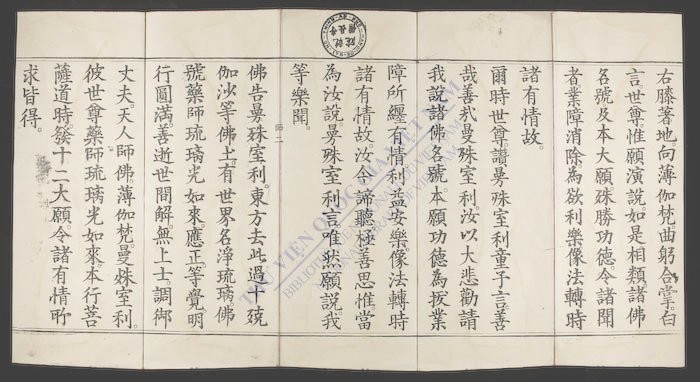 右膝著地。向薄伽梵。曲躬合掌。白
言世尊惟願演說如是相類諸佛
名號及本大願殊勝功德令諸聞
者業障消除為欲利樂像法轉時
諸有情故。
爾時世尊。讚曼殊室利童子言善
哉善哉曼殊室利。汝以大悲勸請
我說諸佛名號。本願功德為拔業
障所纏有情利益安樂。像法轉時
諸有情故。汝今諦聽極善思惟當
為汝說。曼殊室利言。唯然願說。我
等樂聞。
佛告曼殊室利。東方去此過十殑
伽沙等佛土。有世界名淨琉璃佛
號藥師琉璃光如來。應正等覺。明
行圓滿善逝世間解。無上士。調御
丈夫。天人師佛薄伽梵。曼殊室利。
彼世尊藥師琉璃光如來。本行菩
薩道時。發十二大願。令諸有情所
求皆得。
THƯ VIỆN QUỐC GIA VIỆT NAM
BIBLIOTHÈQUE NATIONALE DU VIETNAM
NATIONAL LIBRARY OF VIETNAM